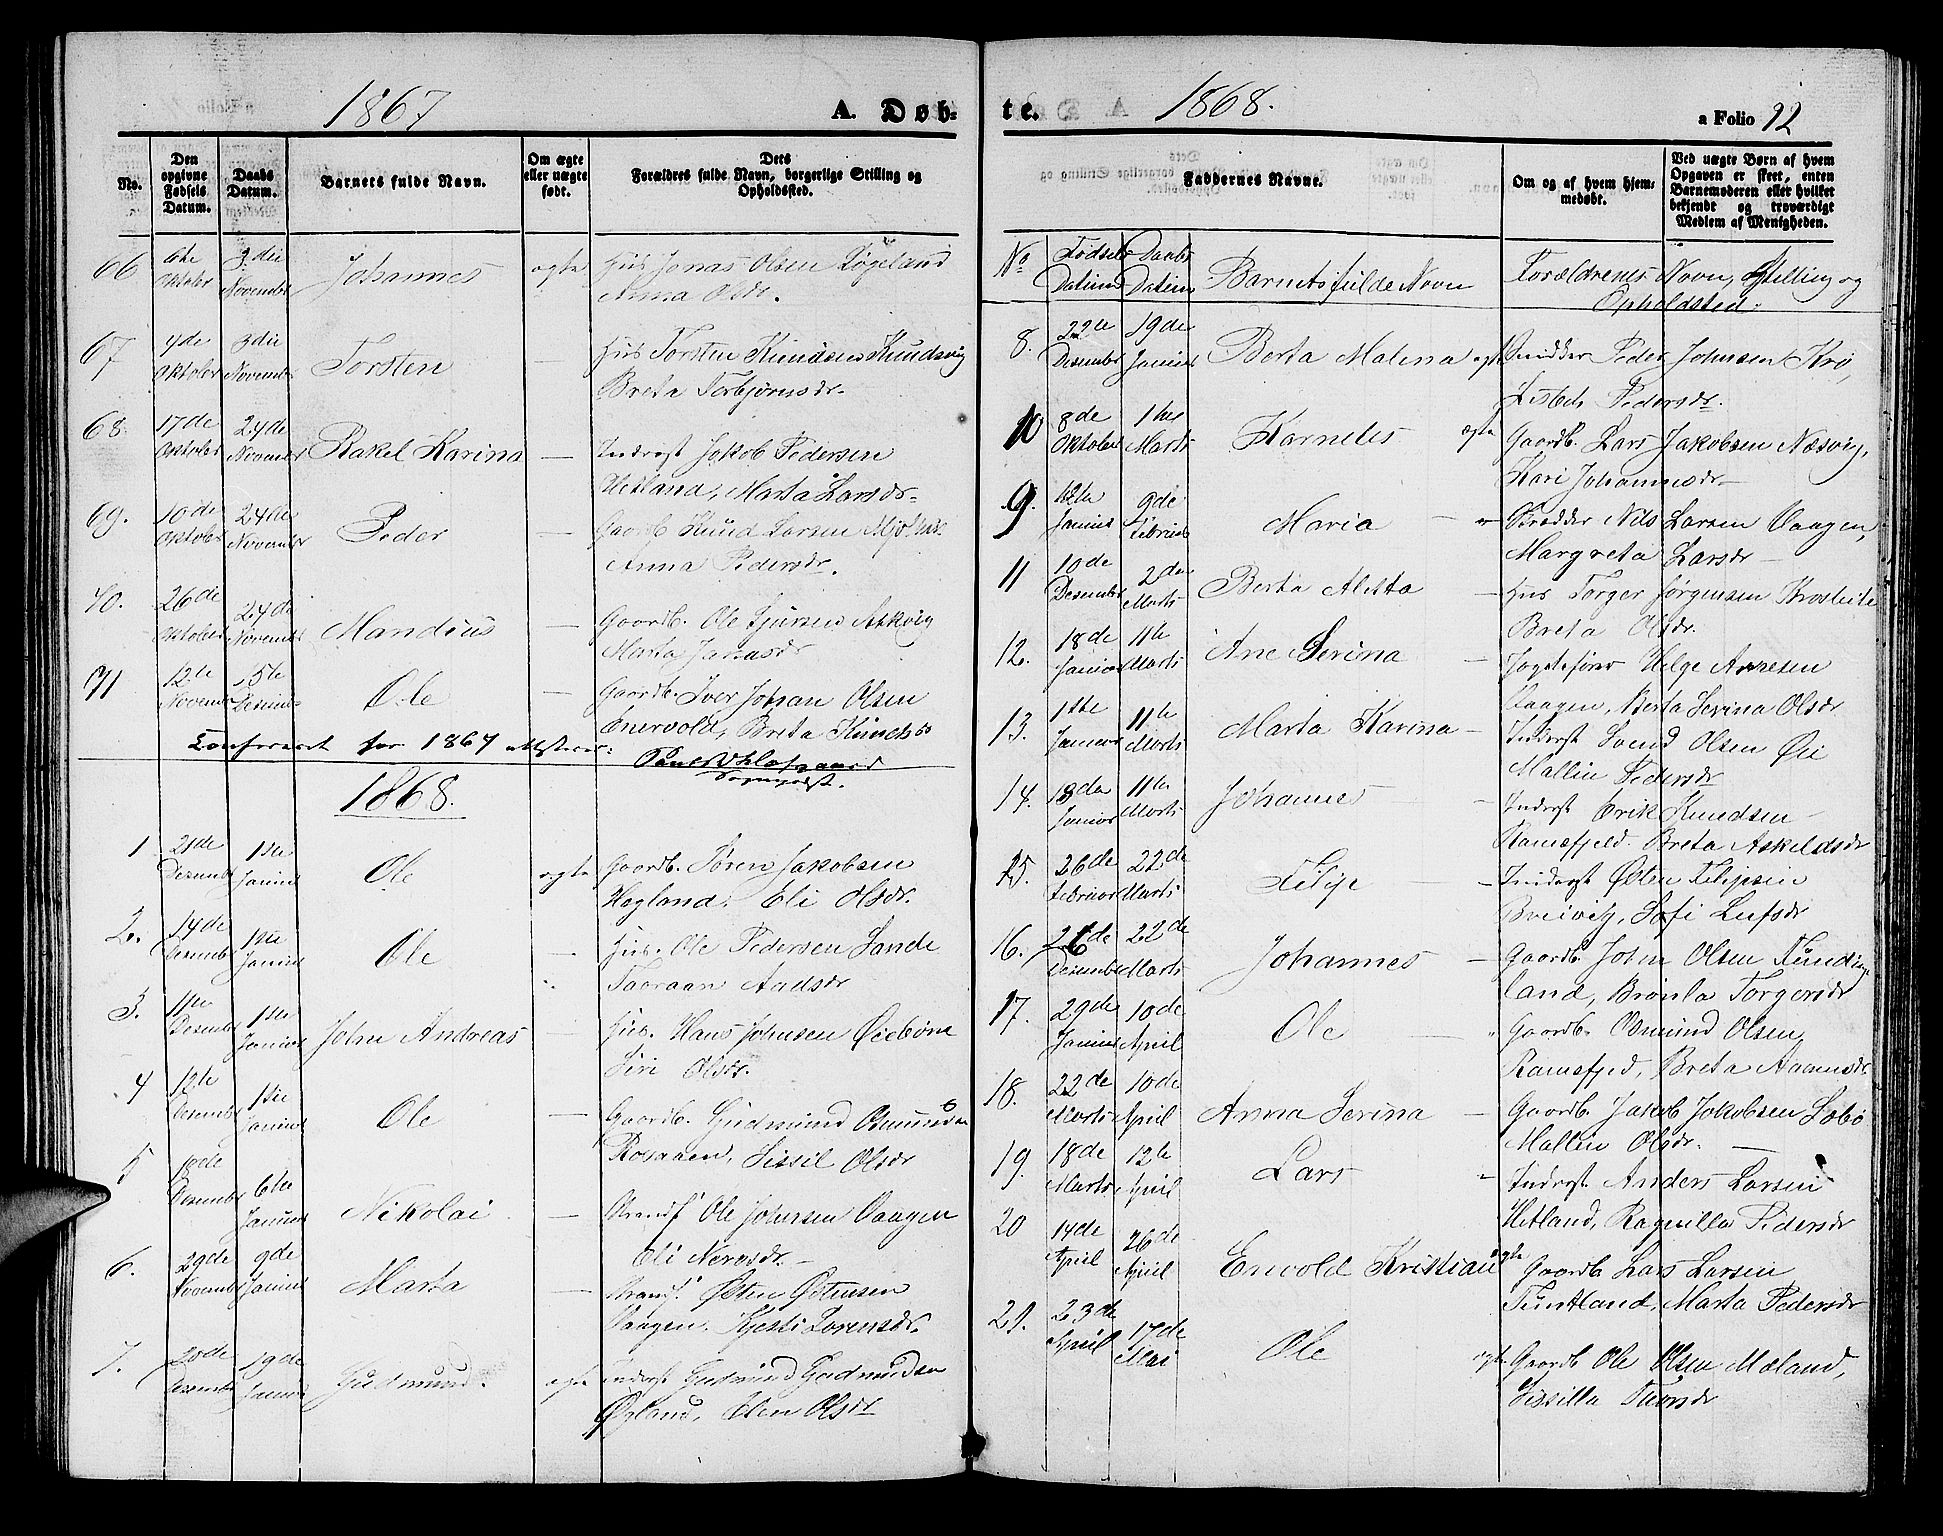 1867
A. Døb-
No.
Den opgivne Fødsels Datum.
Daabs Datum.
Barnets fulde Navn.
Om ægte eller uægte født.
Dets Forældres fulde Navn, borgerlige Stilling og Opholdssted.
66 6te Oktober 3die November Johannes ægte Hus Jonas Olsen Løgeland
Anna Olsdr.
67 4de Oktober 3die November Torsten — Hus Torsten Knudsen Knudsvig
Breta Torbjørnsdr.
68. 17de Oktober 24de November Rakel Karina — Inderst Jakob Pedersen
Hetland, Marta Larsdr.
69. 10de Oktober 24de November Peder — Gaardb Knud Larsen
Anna Pedersdr.
70. 26de Oktober 24de November Mandius — Gaardb. Ole Sjursen Askvig
Marta Jonasdr
71 12te November 5te Desember Ole — Gaardb. Iver Johan Olsen
Enervold, Breta Knudsdr
Confereret for 1867 attesteres:
Sognepræst.
1868.
1 21de Desember 1ste Januar Ole ægte Gaardb. Søren Jakobsen
Hogland, Eli Olsdr.
2. 14de Desember 1ste Januar Ole — Hus. Ole Pedersen Sande
Taaraan Aadsdr
3. 11te Desember 1ste Januar John Andreas — Hus. Hans Johnsen Øiebøne
Siri Olsdr.
4 12te Desember 1ste Januar Ole — Gaardb. Gudmund Osmundsen
Rosaaen, Sissil Olsdr
5 10de Desember 6te Januar Nikolai — Strands. Ole Johnsen Vaagen
Eli Nervsdr. —
6. 29de November 9de Januar Marta — Strands. Østen Østensen
Vaagen, Kjesti Lorensdr.
7. 20de Desember 19de Januar Gudmund. ægte Inderst Gudmund Gudmundsen
Øgland, Elen Olsdr
te.
1868.
a Folio 92
Faddernes Navne.
Om og af hvem hjemmedøbt.
Ved uægte Børn af hvem Opgaven er skeet, enten Barnemoderen eller hvilket bekjendt og troværdigt Medlem af Menigheden.
No Fødsels Datum Daabs Datum Barnets fulde Navn Forældrenes Navn, Stilling og
Opholdsted.
8. 22de Desember 19de Januar Berta Malena ægte Snidker Peder Johnsen Krø,
Lisbeh Pedersdr.
10 8de Oktober 1ste Marts Karnelis ægte Gaardb. Lars Jakobsen Næsvig,
Kari Johannesdr —
9. 12te Januar 9de Februar Maria — Brødder Nils Larsen Vaagen,
Margreta Larsdr —
11 10de Desember 2den Marts Berta Aletta — Hus Torger Jørgensen Krosleite
Breta Olsdr.
12. 18de Januar 11te Marts Ane Serina — Jagtefører Helge Arnesen
Vaagen, Berta Serina Olsdr
13. 1ste Januar 11te Marts Marta Karina — Inderst Svend Olsen Øie
Mallin Pedersdr
14. 18de Januar 11te Marts Johannes — Inderst Erik Knudsen
Ramsfjeld. Breta Askeldsdr
15. 26de Februar 22de Marts Filip — Inderst Østen Filipsen
Breivig, Sofi Leifsdr
16. 26de Desember 22de Marts Johannes — Gaardb. John Olsen Funding
land, Bronla Torgersdr
17. 29de Januar 10de April Ole — Gaardb. Osmund Olsen
Ramsfjed, Breta Aamsdr
18. 22de Marts 10de April Anna Serina — Gaardb. Jakob Jokobsen Løbø
Mallin Olsdr. —
19. 18de Marts 12te April Lars Inderst Anders Larsen
Hetland, Ragnilla Pedersdr
20 14de April 26de April Enevold Kristian ægte Gaardb Lars Larsen
Tuntland, Marta Pedersdr
21. 23de April 17de Mai Ole ægte Gaardb Ole Olsen Mæland,
Sissilla Tuorsdr